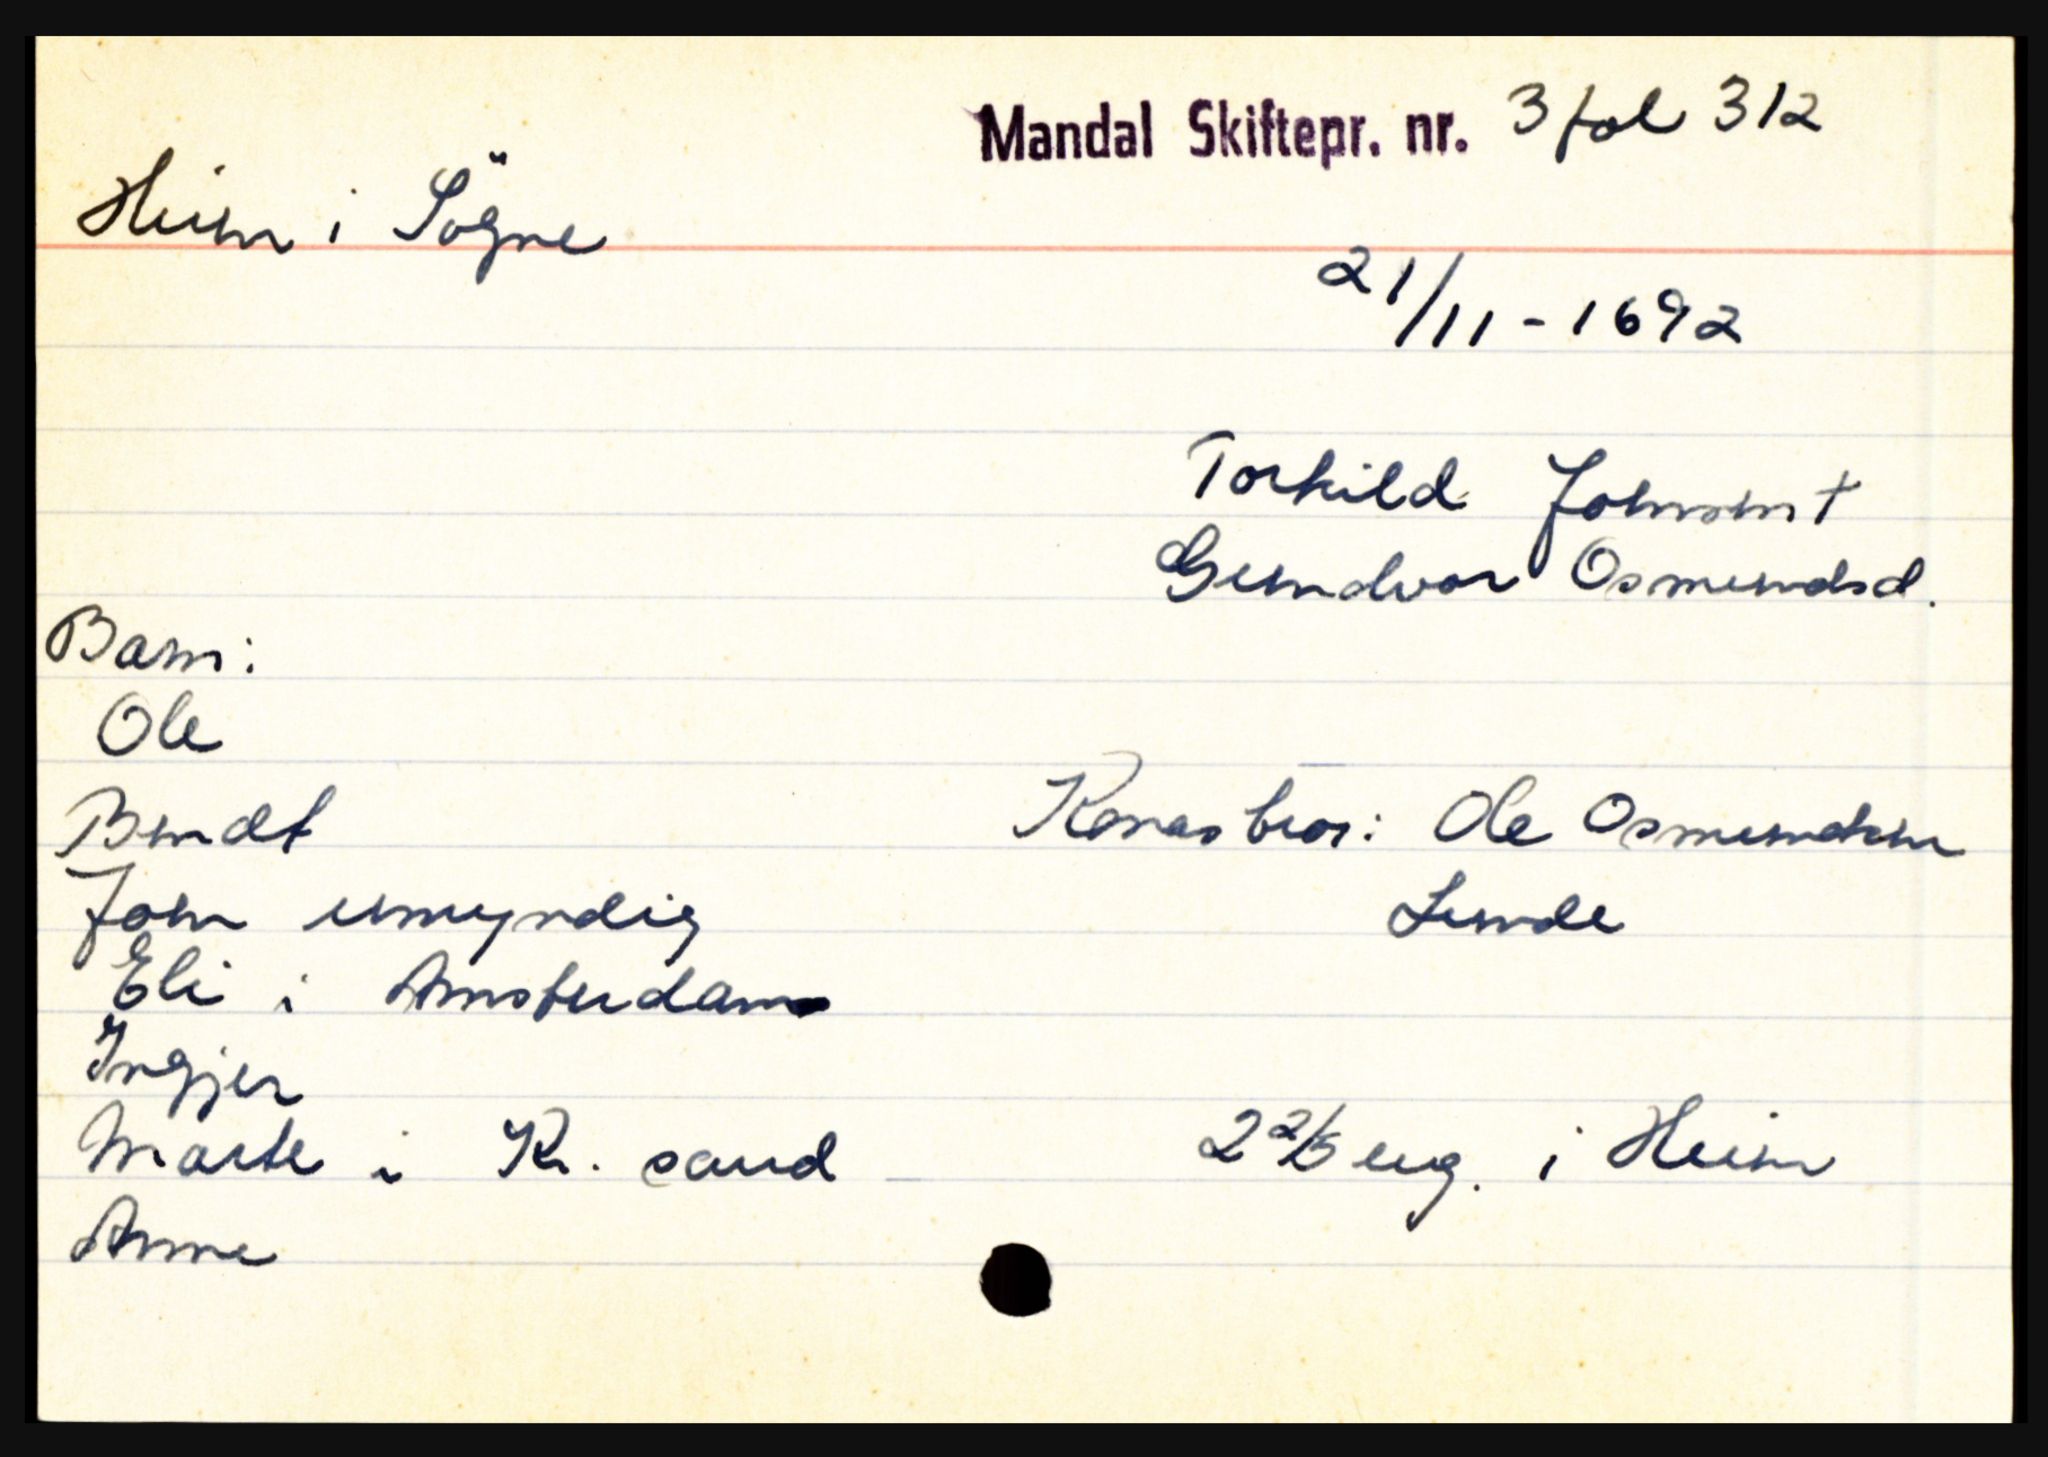 Mandal Skiftepr. nr. 3 fol 312
Heim i Sögne
21/11-1692
Torkild Johnsen †
Gundvor Osmundsd.
Barn:
Ole
Bendt
Konas bror: Ole Osmundsen
John umyndig
Lunde
Eli i Amsterdam
Ingjer
Marte i Kr. sand
2 2/3 eng. i Heim
Anne